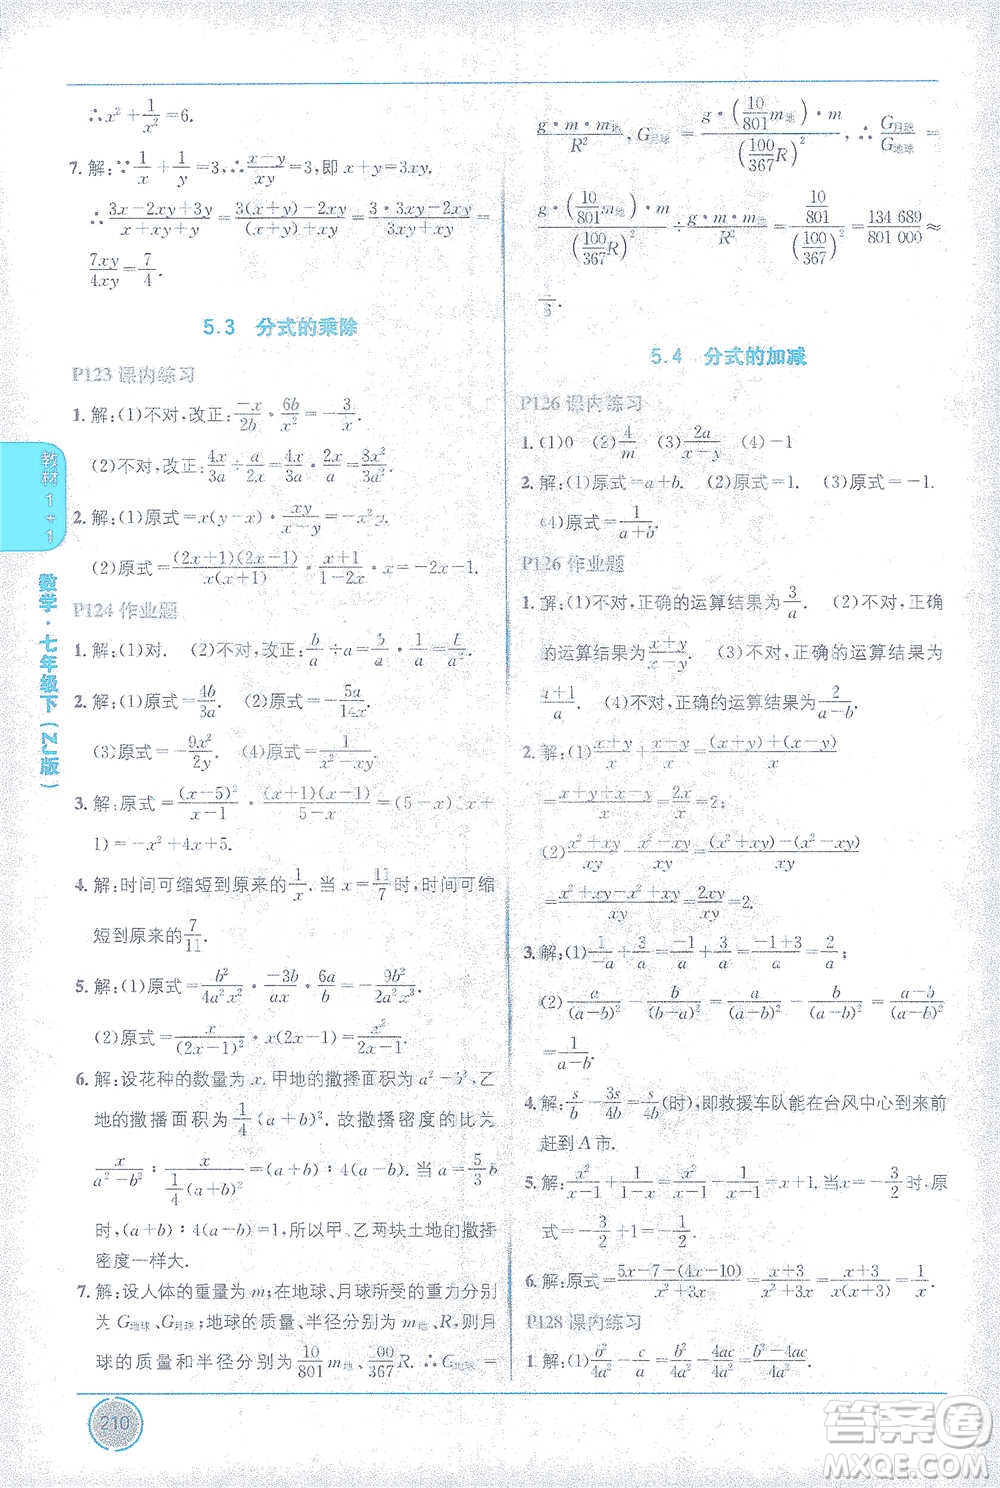 ∴x²+1/x²=6.
7. 解:∵1/x+1/y=3,∴(x+y)/xy=3,即x+y=3xy.
∴(3x-2xy+3y)/(x+xy+y)=(3(x+y)-2xy)/((x+y)+xy)=(3·3xy-2xy)/(3xy+xy)=
7xy/4xy=7/4.
5.3 分式的乘除
P123 课内练习
1. 解:(1)不对,改正:-x/2b·6b/x²=-3/x.
(2)不对,改正:4x/3a÷a/2x=4x/3a·2x/a=8x²/3a².
2. 解:(1)原式=x(y-x)·xy/(x-y)=-x²y.
(2)原式=(2x+1)(2x-1)/x(x+1)·
P124 作业题
1. 解:(1)对. (2)不对,改正:b/a÷a=b/a·1/a=b/a².
2. 解:(1)原式=4b/3a. (2)原式=-5a/14x.
(3)原式=-9x²/2y. (4)原式=1/(x²-xy).
3. 解:原式=(x-5)²/(x-1)·(x+1)(x-1)/(5-x)=-(x-5)(x+
1)=-x²+4x+5.
4. 解:时间可缩短到原来的1/x.当x=11/7时,时间可缩
短到原来的7/11.
5. 解:(1)原式=b²/4a²x²·-3b/ax·3a/b=-9b²/4a²x³.
(2)原式=x/(2x-1)²·x(2x-1)=x²/(2x-1).
6. 解:设花种的数量为x.甲地的撒播面积为a²-b²,乙
地的撒播面积为1/4(a-b)².故撒播密度的比为
x/(a²-b²):x/(1/4(a-b)²)=(a-b):4(a+b).当a=5/3b
时,(a+b):4(a-b)=1,所以甲、乙两块土地的撒播
密度一样大.
7. 解:设人体的重量为m;在地球、月球所受的重力分别
为G地球、G月球;地球的质量、半径分别为m地、R,则月
球的质量和半径分别为10/801m地、100/367R.∴G地球=
g·m·m地/R²,G月球=g·(10/801m地)·m/(100/367R)²,∴G月球/G地球=
g·(10/801m地)·m/(100/367R)²÷g·m·m地/R²=(10/801)/(100/367)²=134 689/801 000≈
1/6.
5.4 分式的加减
P126 课内练习
1. (1)0 (2)4/m (3)2a/(x-y) (4)-1
2. 解:(1)原式=a+b. (2)原式=1. (3)原式=
(4)原式=1/(a+b).
P126 作业题
1. 解:(1)不对,正确的运算结果为3/a. (2)不对,正确
的运算结果为(x+y)/(x-y). (3)不对,正确的运算结果为
(a+1)/a. (4)不对,正确的运算结果为2/(a-b).
2. 解:(1)(x+y)/x+(x-y)/x=((x+y)+(x-y))/x
=(x+y+x-y)/x=2x/x=2;
(2)(x²+xy)/xy-(x²-xy)/xy=((x²+xy)-(x²-xy))/xy
=(x²+xy-x²+xy)/xy=2xy/xy=2.
3. 解:(1)1/-a+3/a=-1/a+3/a=(-1+3)/a=2/a;
(2)a/(a-b)²-b/(b-a)²=a/(a-b)²-b/(a-b)²=(a-b)/(a-b)²
=1/(a-b).
4. 解:s/b-3s/4b=s/4b(时),即救援车队能在台风中心到来前
赶到A市.
5. 解:x²/(x-1)+1/(1-x)=(x²-1)/(x-1)=x+1,当x=-3/2时,原
式=-3/2+1=-1/2.
6. 解:原式=(5x-7-(4x-10))/(x²+3x)=(x+3)/(x²+3x)=(x+3)/x(x+3)=1/x.
P128 课内练习
1. 解:(1)b²/4a²-c/a=b²/4a²-4ac/4a²=(b²-4ac)/4a².
教材1+1
数学·七年级下(ZJ版)
210
答案圈
MXQE.COM